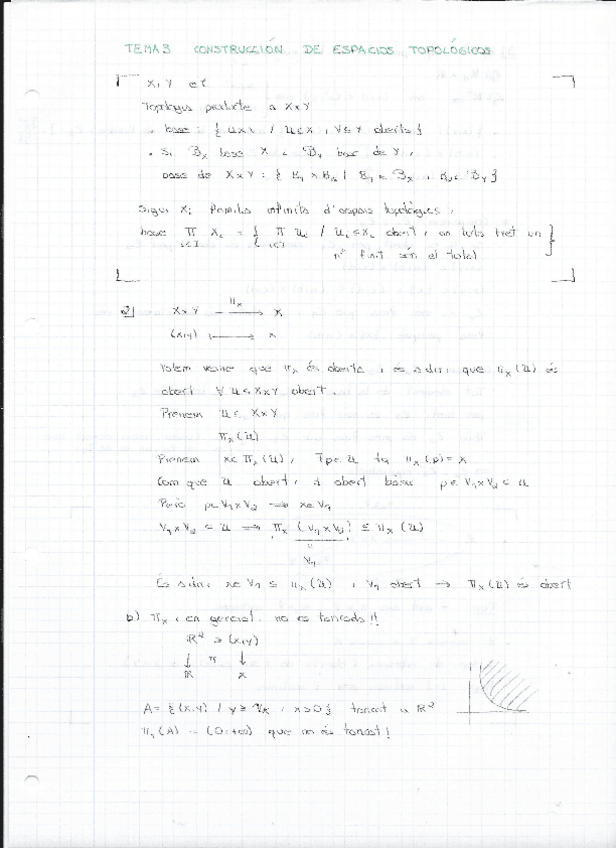 TEMA 3 CONSTRUCCIÓN DE ESPACIOS TOPOLÓGICOS
X, Y et
Topologia producte a X×Y
. base: { U×V / U⊆X, V⊆Y oberts }
. Si B_X base X i B_Y base de Y,
base de X×Y: { B_1 × B_2 | B_1 ∈ B_X, B_2 ∈ B_Y }
Sigui X_i família infinita d'espais topològics,
base ∏_{i∈I} X_i = { ∏_{i∈I} U_i / U_i ⊆ X_i obert, on tots tret un
nº finit són el total }
2)
X×Y —π_X→ X
(x,y) ⟼ x
Volem veure que π_X és oberta, és a dir, que π_X(U) és
obert ∀ U ⊂ X×Y obert.
Prenem U ⊂ X×Y
π_X(U)
Prenem x ∈ π_X(U), ∃ p ∈ U tq π_X(p) = x
Com que U obert, ∃ obert bàsic p ∈ V_1×V_2 ⊂ U
Però p ∈ V_1×V_2 ⟹ x ∈ V_1
V_1×V_2 ⊂ U ⟹ π_X(V_1×V_2) ⊆ π_X(U)
V_1
És a dir x ∈ V_1 ⊆ π_X(U) i V_1 obert → π_X(U) és obert
b) π_X, en general, no és tancada!!
ℝ² ∋ (x,y)
↓ π ↓
ℝ x
A = { (x,y) / y ≥ 1/x, x>0 } tancat a ℝ²
π_1(A) = (0,+∞) que no és tancat!